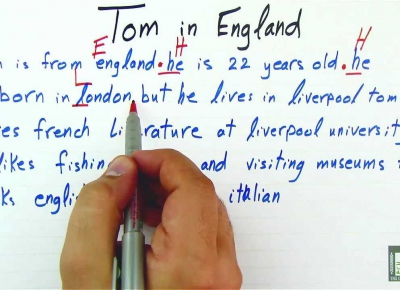 Tom in England
E H H
n is from england . he is 22 years old . he
L
born in london, but he lives in liverpool tom
es french literature at liverpool university
likes fishing and visiting museums
ks engli italian